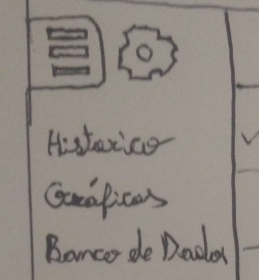 Historico
Gráficos
Banco de Dados